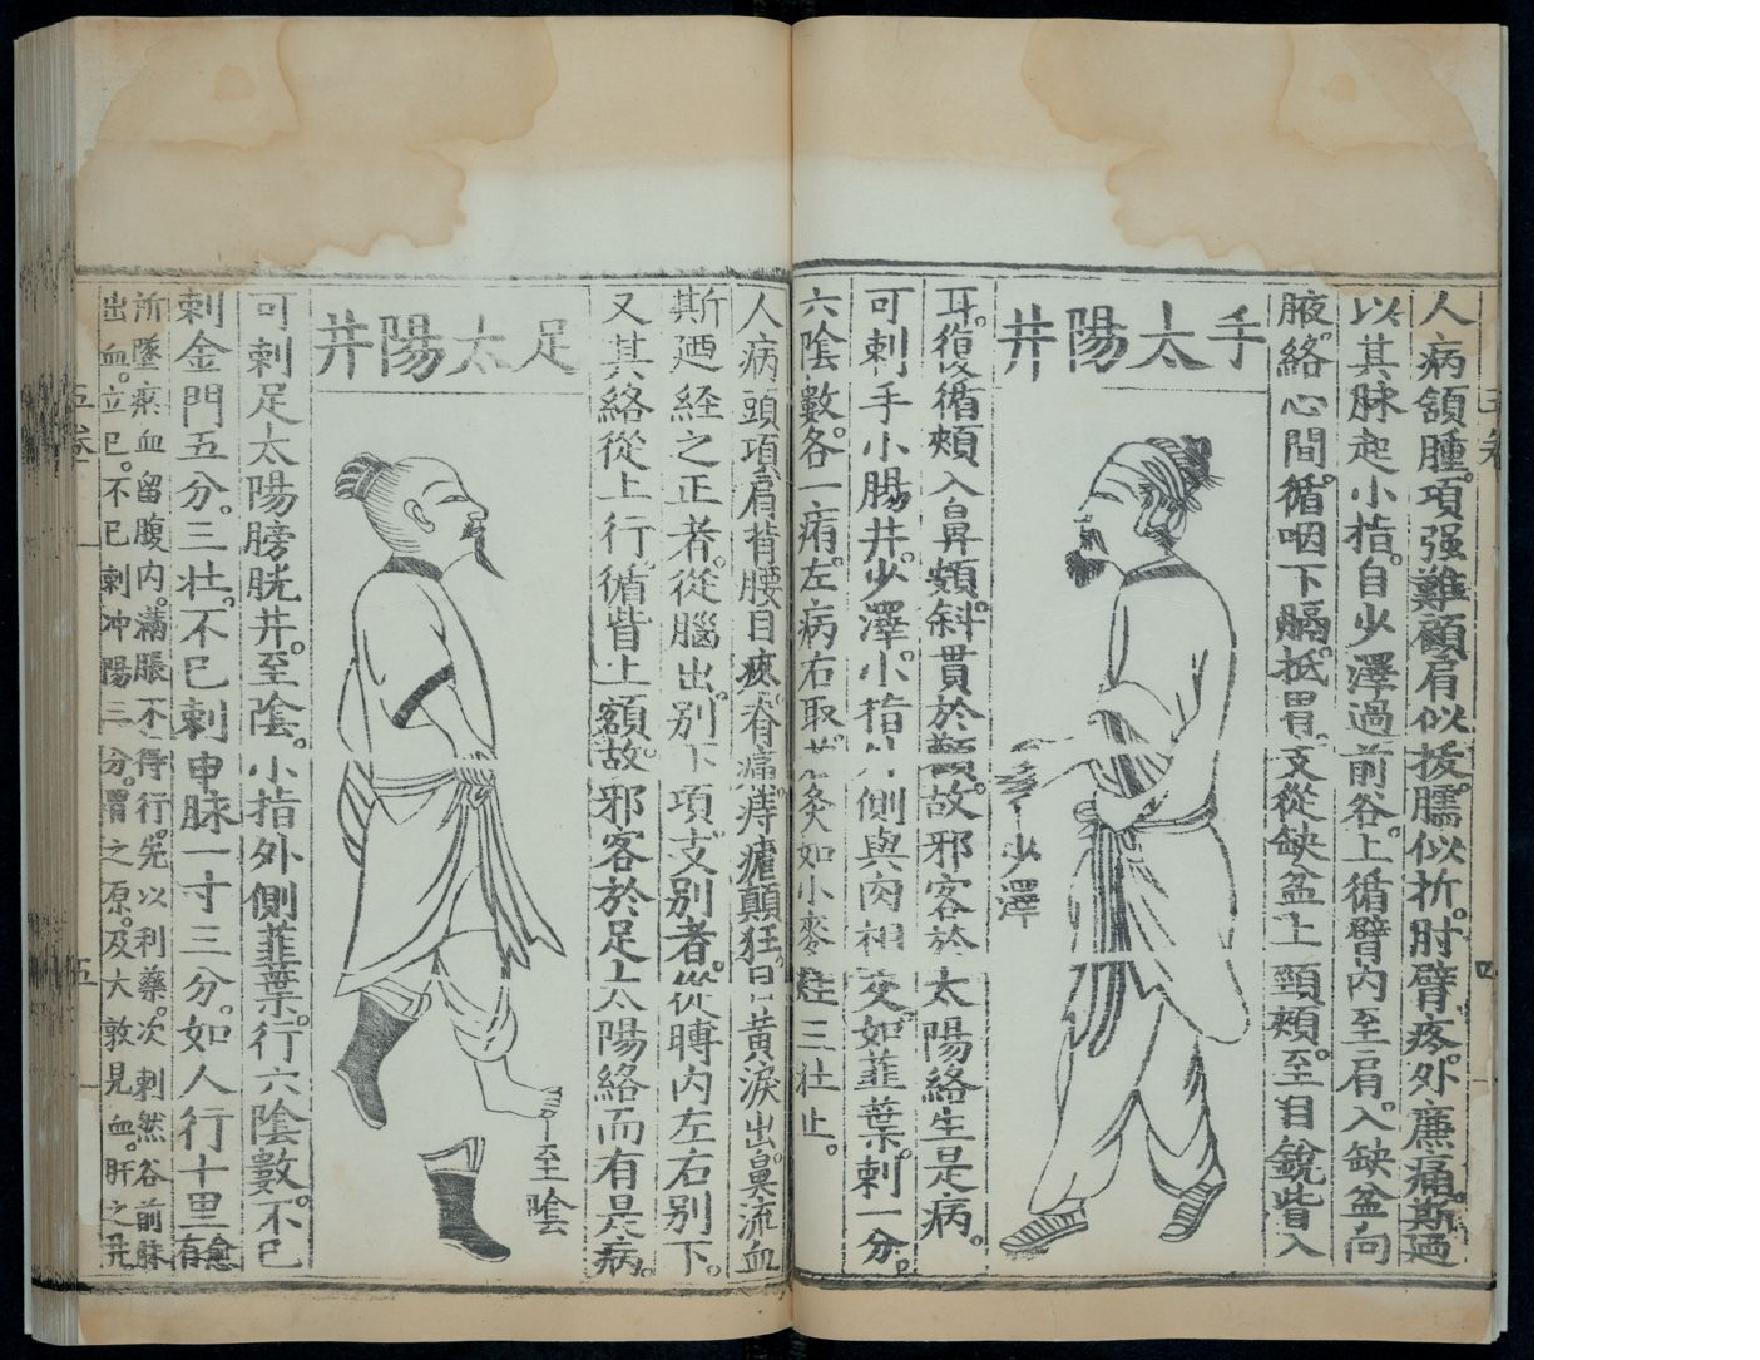 人病頷腫。項强難顧肩似拔。臑似折。肘臂疼。外廉痛。斯廼
以其脉起小指。自少澤過前谷。上循臂內至肩。入缺盆向
腋。絡心間。循咽下膈。抵胃。支從缺盆上頸頰。至目銳眥入
手太陽井
少澤
耳。復循頰入鼻頞。斜貫於顴。故邪客於太陽絡生是病。
可刺手小腸井。少澤。小指外側與肉相交。如韮葉。刺一分。
六陰數。各一痏。左病右取。灸如小麥炷三壯止。
人病頭項肩背腰目疼。脊痛痔瘧顛狂。目黃淚出。鼻流血
斯廼経之正者。從腦出。別下項。支別者。從膊內左右別下。
又其絡從上行。循眥上額。故邪客於足太陽絡而有是病。
足太陽井
至陰
可刺足太陽膀胱井。至陰。小指外側韮葉。行六陰數。不已
刺金門五分。三壯。不已刺申脉一寸三分。如人行十里有愈
所墜瘀血留腹內。滿脹不得行。先以利藥。次刺然谷前脉
出血。立已。不已刺沖陽三分。胃之原。及大敦見血。肝之井。
五卷
五
四